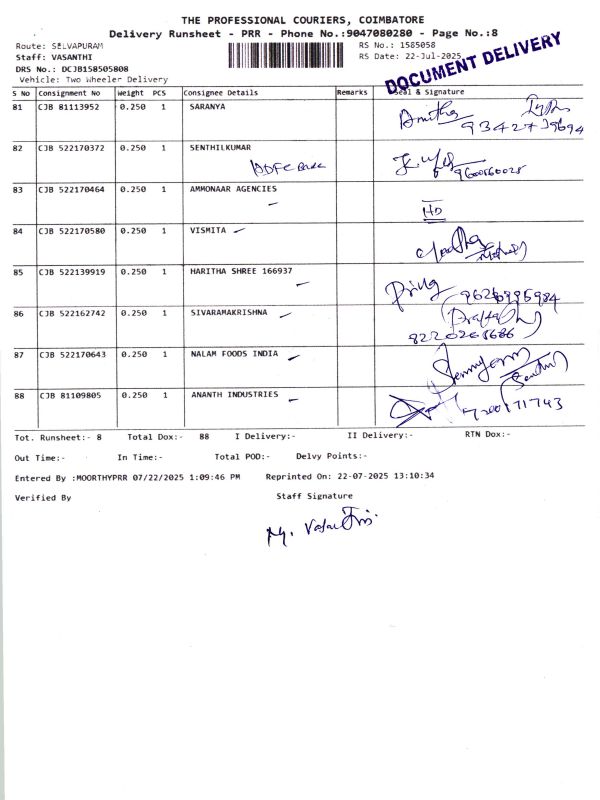 THE PROFESSIONAL COURIERS, COIMBATORE
Delivery Runsheet - PRR - Phone No.:9047080280 - Page No.:8
Route: SELVAPURAM
RS No.: 1585058
Staff: VASANTHI
RS Date: 22-Jul-2025
DRS No.: DCJB158505808
DOCUMENT DELIVERY
Vehicle: Two Wheeler Delivery
S No Consignment No Weight PCS Consignee Details Remarks Seal & Signature
81 CJB 81113952 0.250 1 SARANYA
Anitha
82 CJB 522170372 0.250 1 SENTHILKUMAR
HDFC Bank
83 CJB 522170464 0.250 1 AMMONAAR AGENCIES
84 CJB 522170580 0.250 1 VISMITA
85 CJB 522139919 0.250 1 HARITHA SHREE 166937
86 CJB 522162742 0.250 1 SIVARAMAKRISHNA
87 CJB 522170643 0.250 1 NALAM FOODS INDIA
88 CJB 81109805 0.250 1 ANANTH INDUSTRIES
Tot. Runsheet:- 8 Total Dox:- 88 I Delivery:- II Delivery:- RTN Dox:-
Out Time:- In Time:- Total POD:- Delvy Points:-
Entered By :MOORTHYPRR 07/22/2025 1:09:46 PM Reprinted On: 22-07-2025 13:10:34
Verified By Staff Signature